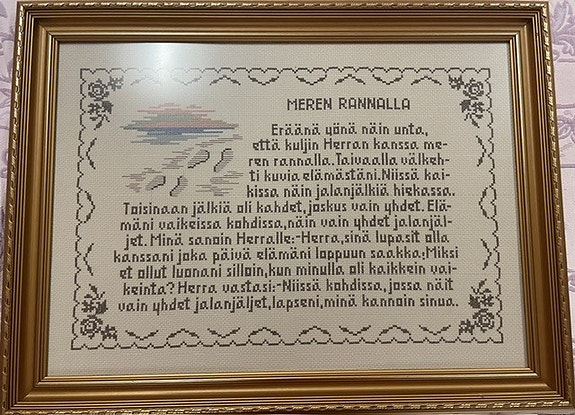 MEREN RANNALLA
Eräänä yönä näin unta,
että kuljin Herran kanssa me-
ren rannalla.Taivaalla välkeh-
ti kuvia elämästäni.Niissä kai-
kissa näin jalanjälkiä hiekassa.
Toisinaan jälkiä oli kahdet,joskus vain yhdet.Elä-
mäni vaikeissa kohdissa,näin vain yhdet jalanjäl-
jet. Minä sanoin Herralle:-Herra,sinä lupasit olla
kanssani joka päivä elämäni loppuun saakka;Miksi
et ollut luonani silloin,kun minulla oli kaikkein vai-
keinta? Herra vastasi:-Niissä kohdissa,jossa näit
vain yhdet jalanjäljet,lapseni,minä kannoin sinua.